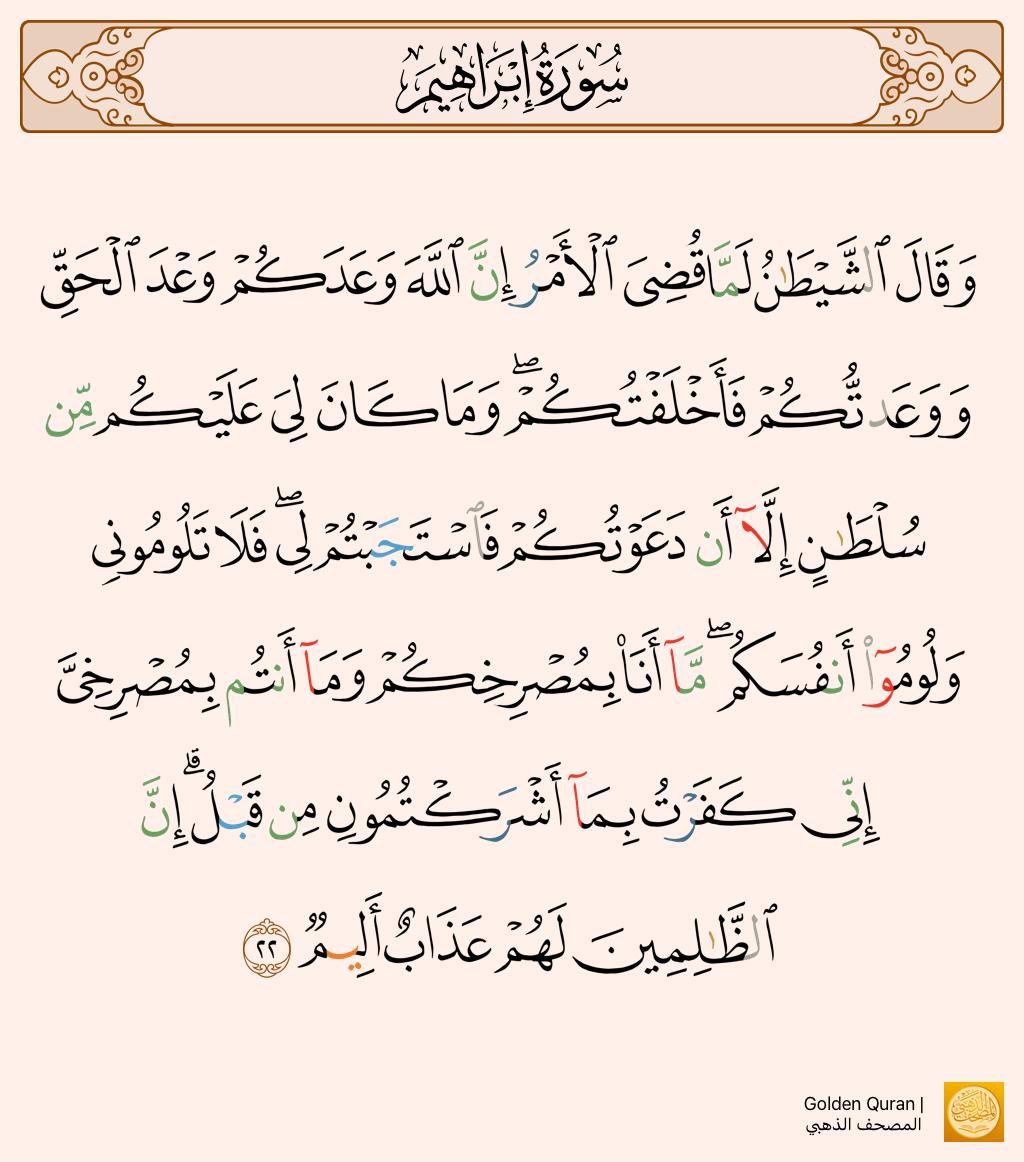 سُورَةُ إِبْرَاهِيمَ
وَقَالَ ٱلشَّيْطَٰنُ لَمَّا قُضِىَ ٱلْأَمْرُ إِنَّ ٱللَّهَ وَعَدَكُمْ وَعْدَ ٱلْحَقِّ
وَوَعَدتُّكُمْ فَأَخْلَفْتُكُمْ ۖ وَمَا كَانَ لِىَ عَلَيْكُم مِّن
سُلْطَٰنٍ إِلَّآ أَن دَعَوْتُكُمْ فَٱسْتَجَبْتُمْ لِى ۖ فَلَا تَلُومُونِى
وَلُومُوٓا۟ أَنفُسَكُم ۖ مَّآ أَنَا۠ بِمُصْرِخِكُمْ وَمَآ أَنتُم بِمُصْرِخِىَّ
إِنِّى كَفَرْتُ بِمَآ أَشْرَكْتُمُونِ مِن قَبْلُ ۗ إِنَّ
ٱلظَّٰلِمِينَ لَهُمْ عَذَابٌ أَلِيمٌ ٢٢
Golden Quran |
المصحف الذهبي